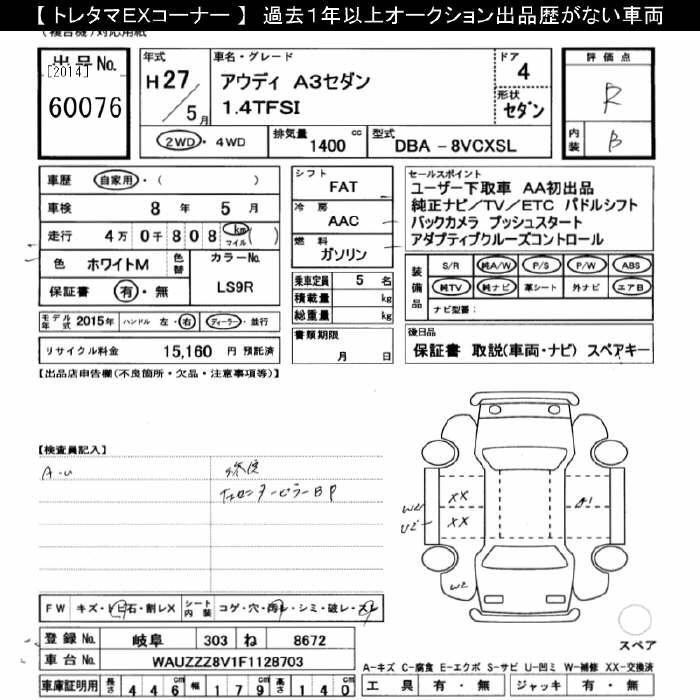 【 トレタマEXコーナー 】 過去1年以上オークション出品歴がない車両
(複合機)対応用紙
出品No.
[2014]
60076
年式
H27/5月
車名・グレード
アウディ A3セダン
1.4TFSI
ドア
4
形状
セダン
評価点
R
内装
B
2WD・4WD
排気量 1400 cc
型式 DBA - 8VCXSL
車歴 自家用・( )
車検 8年 5月
走行 4万0千808 km マイル ( )
色 ホワイトM 色替
カラーNo. LS9R
保証書 有・無
モデル年式 2015年 ハンドル 左・右 ディーラー・並行
リサイクル料金 15,160 円 預託済
シフト
FAT
冷房
AAC
燃料
ガソリン
乗車定員 5 名
積載量 kg
総重量 kg
書類期限
月 日
セールスポイント
ユーザー下取車 AA初出品
純正ナビ/TV/ETC パドルシフト
バックカメラ プッシュスタート
アダプティブクルーズコントロール
装備品
S/R 純A/W P/S P/W ABS
純TV 純ナビ 革シート 外ナビ エアB
ナビ型番:
後日品
保証書 取説(車両・ナビ) スペアキー
【出品店申告欄(不良箇所・欠品・注意事項等)】
【検査員記入】
A-U
XX
XX
W2
U2
A1
W2
FW キズ・トビ石・割レX
シート内装 コゲ・穴・汚レ・シミ・破レ・スレ
登録No. 岐阜 303 ね 8672
車台No. WAUZZZ8V1F1128703
車庫証明用 長さ 446 cm 幅 179 cm 高さ 140 cm
スペア
A-キズ C-腐食 E-エクボ S-サビ U-凹ミ W-補修 XX-交換済
工具 有・無 ジャッキ 有・無